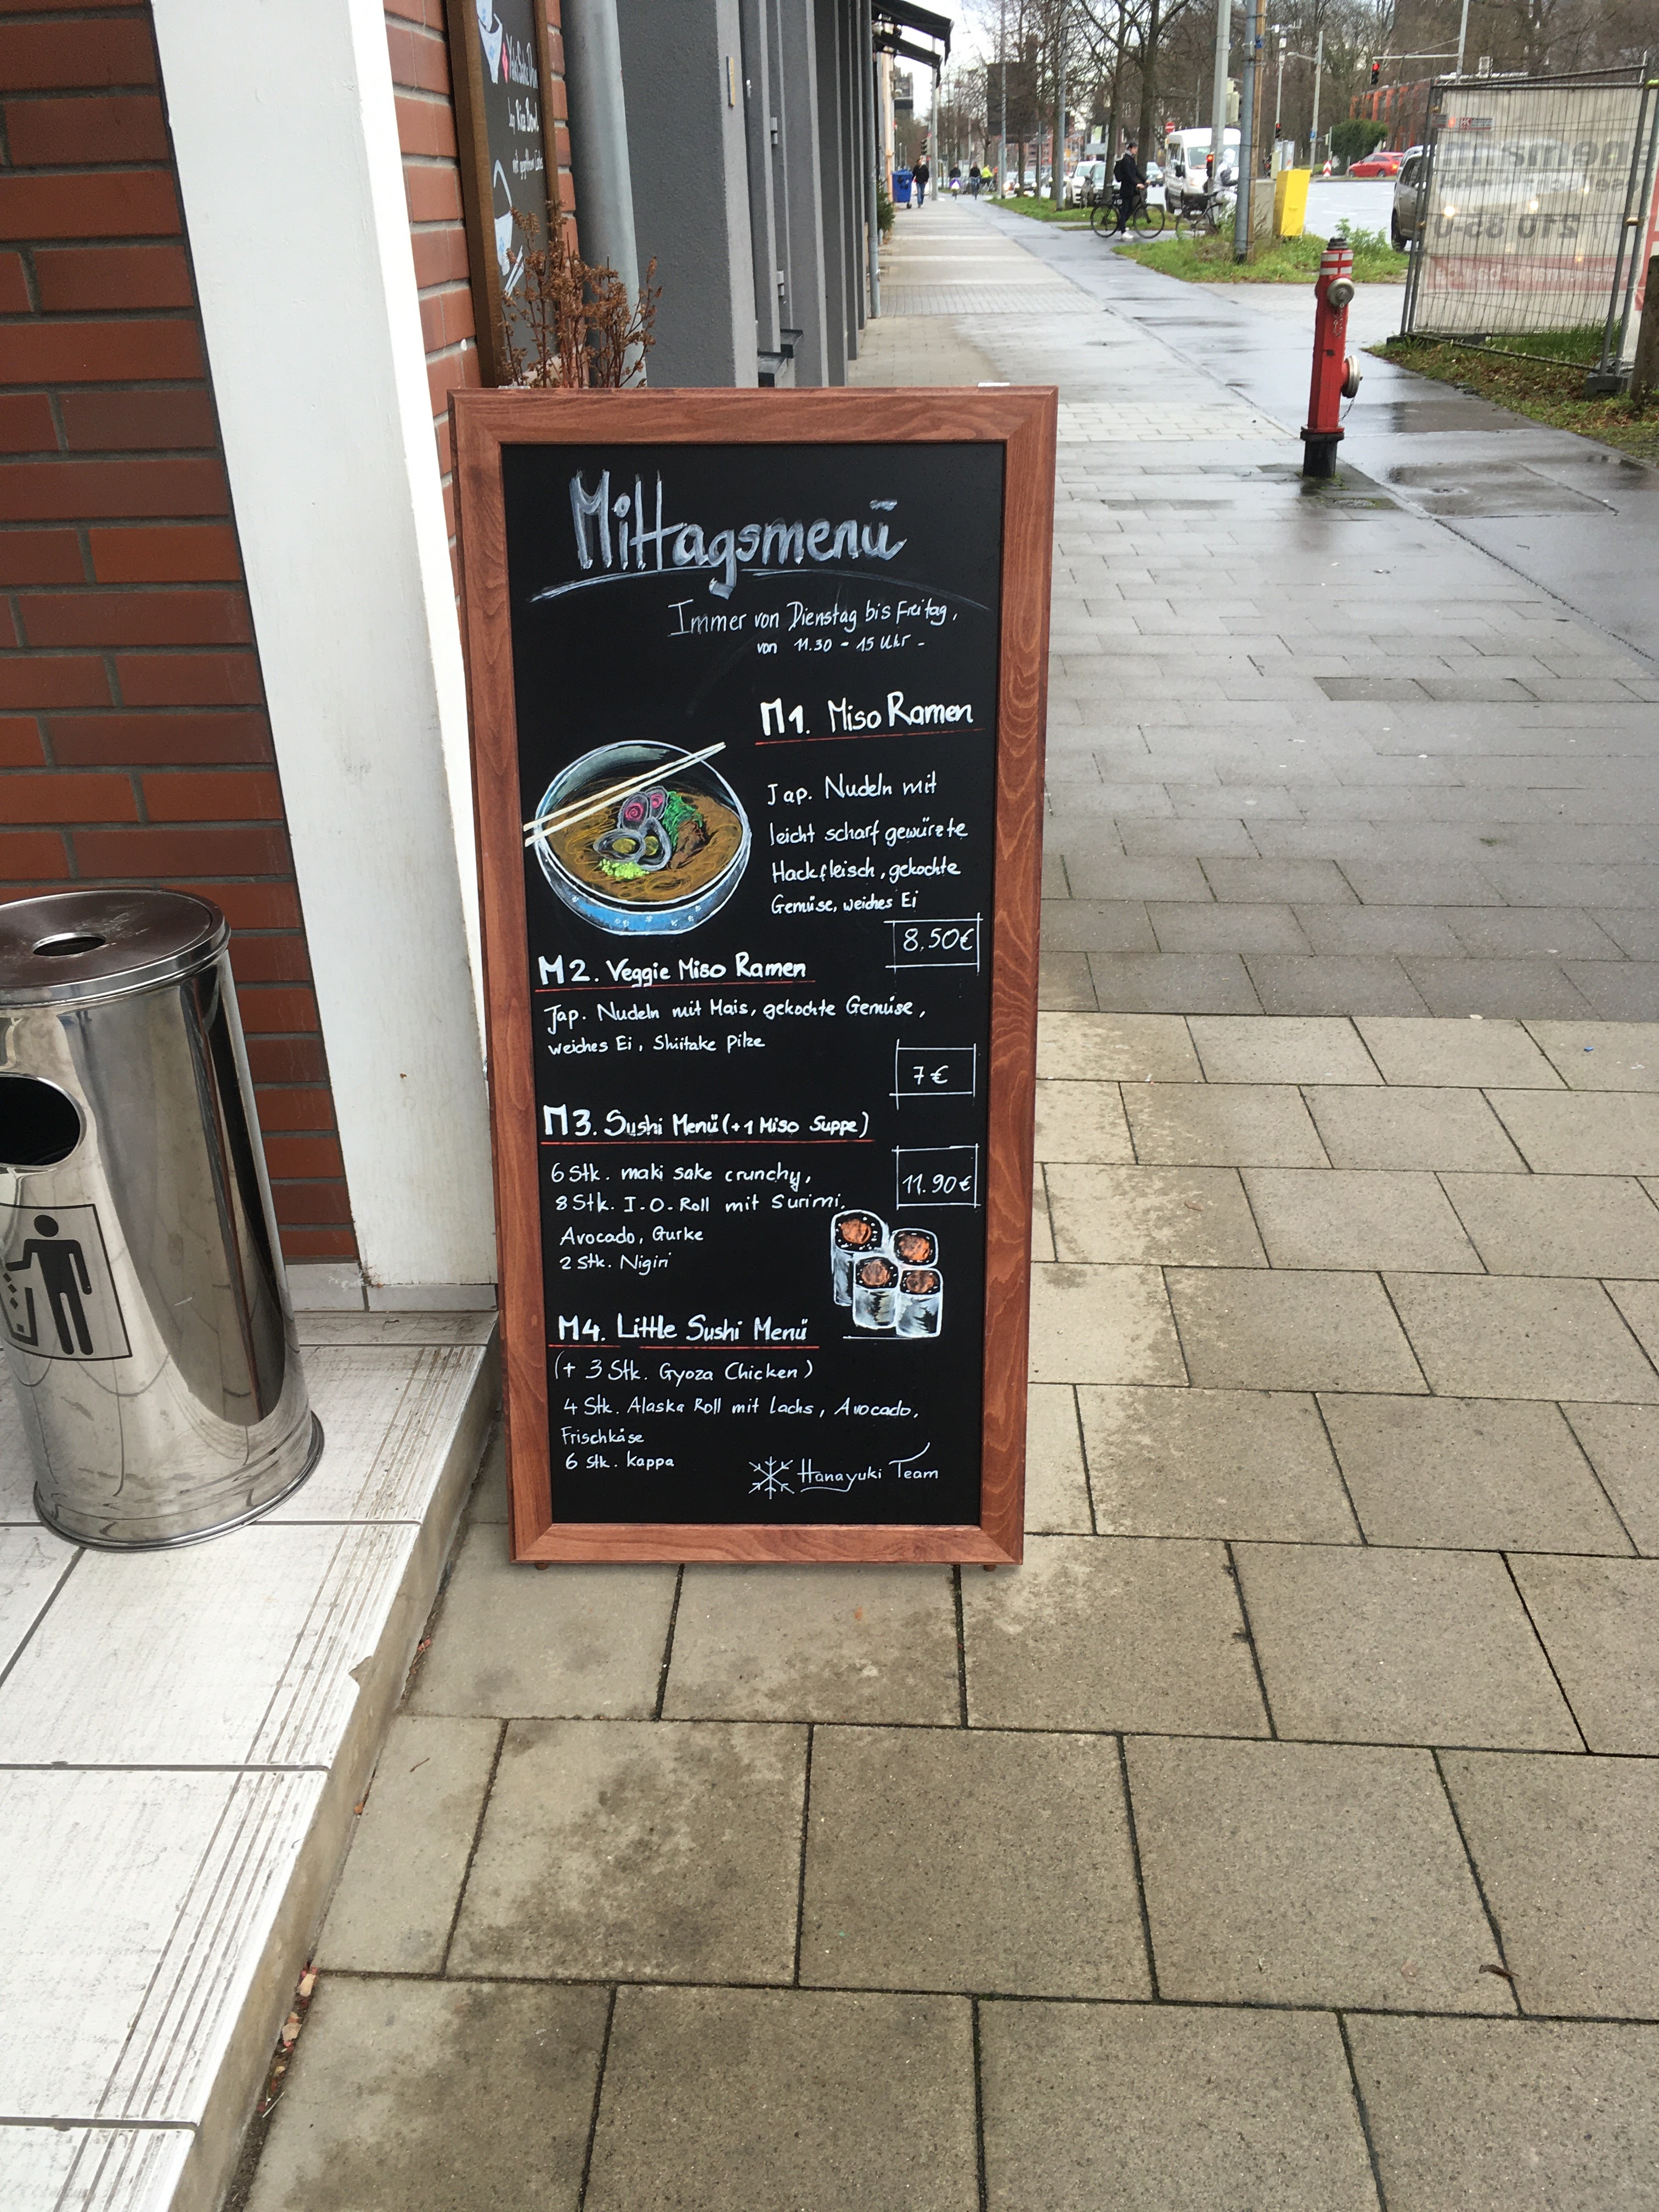 Mittagsmenü
Immer von Dienstag bis Freitag,
von 11.30 - 15 Uhr -
M1. Miso Ramen
Jap. Nudeln mit
leicht scharf gewürzte
Hackfleisch, gekochte
Gemüse, weiches Ei
8,50€
M2. Veggie Miso Ramen
Jap. Nudeln mit Mais, gekochte Gemüse,
weiches Ei, Shiitake Pilze
7€
M3. Sushi Menü (+1 Miso Suppe)
6 Stk. maki sake crunchy,
11.90€
8 Stk. I.O. Roll mit Surimi,
Avocado, Gurke
2 Stk. Nigiri
M4. Little Sushi Menü
(+ 3 Stk. Gyoza Chicken)
4 Stk. Alaska Roll mit lachs, Avocado,
Frischkäse
6 Stk. kappa
Hanayuki Team